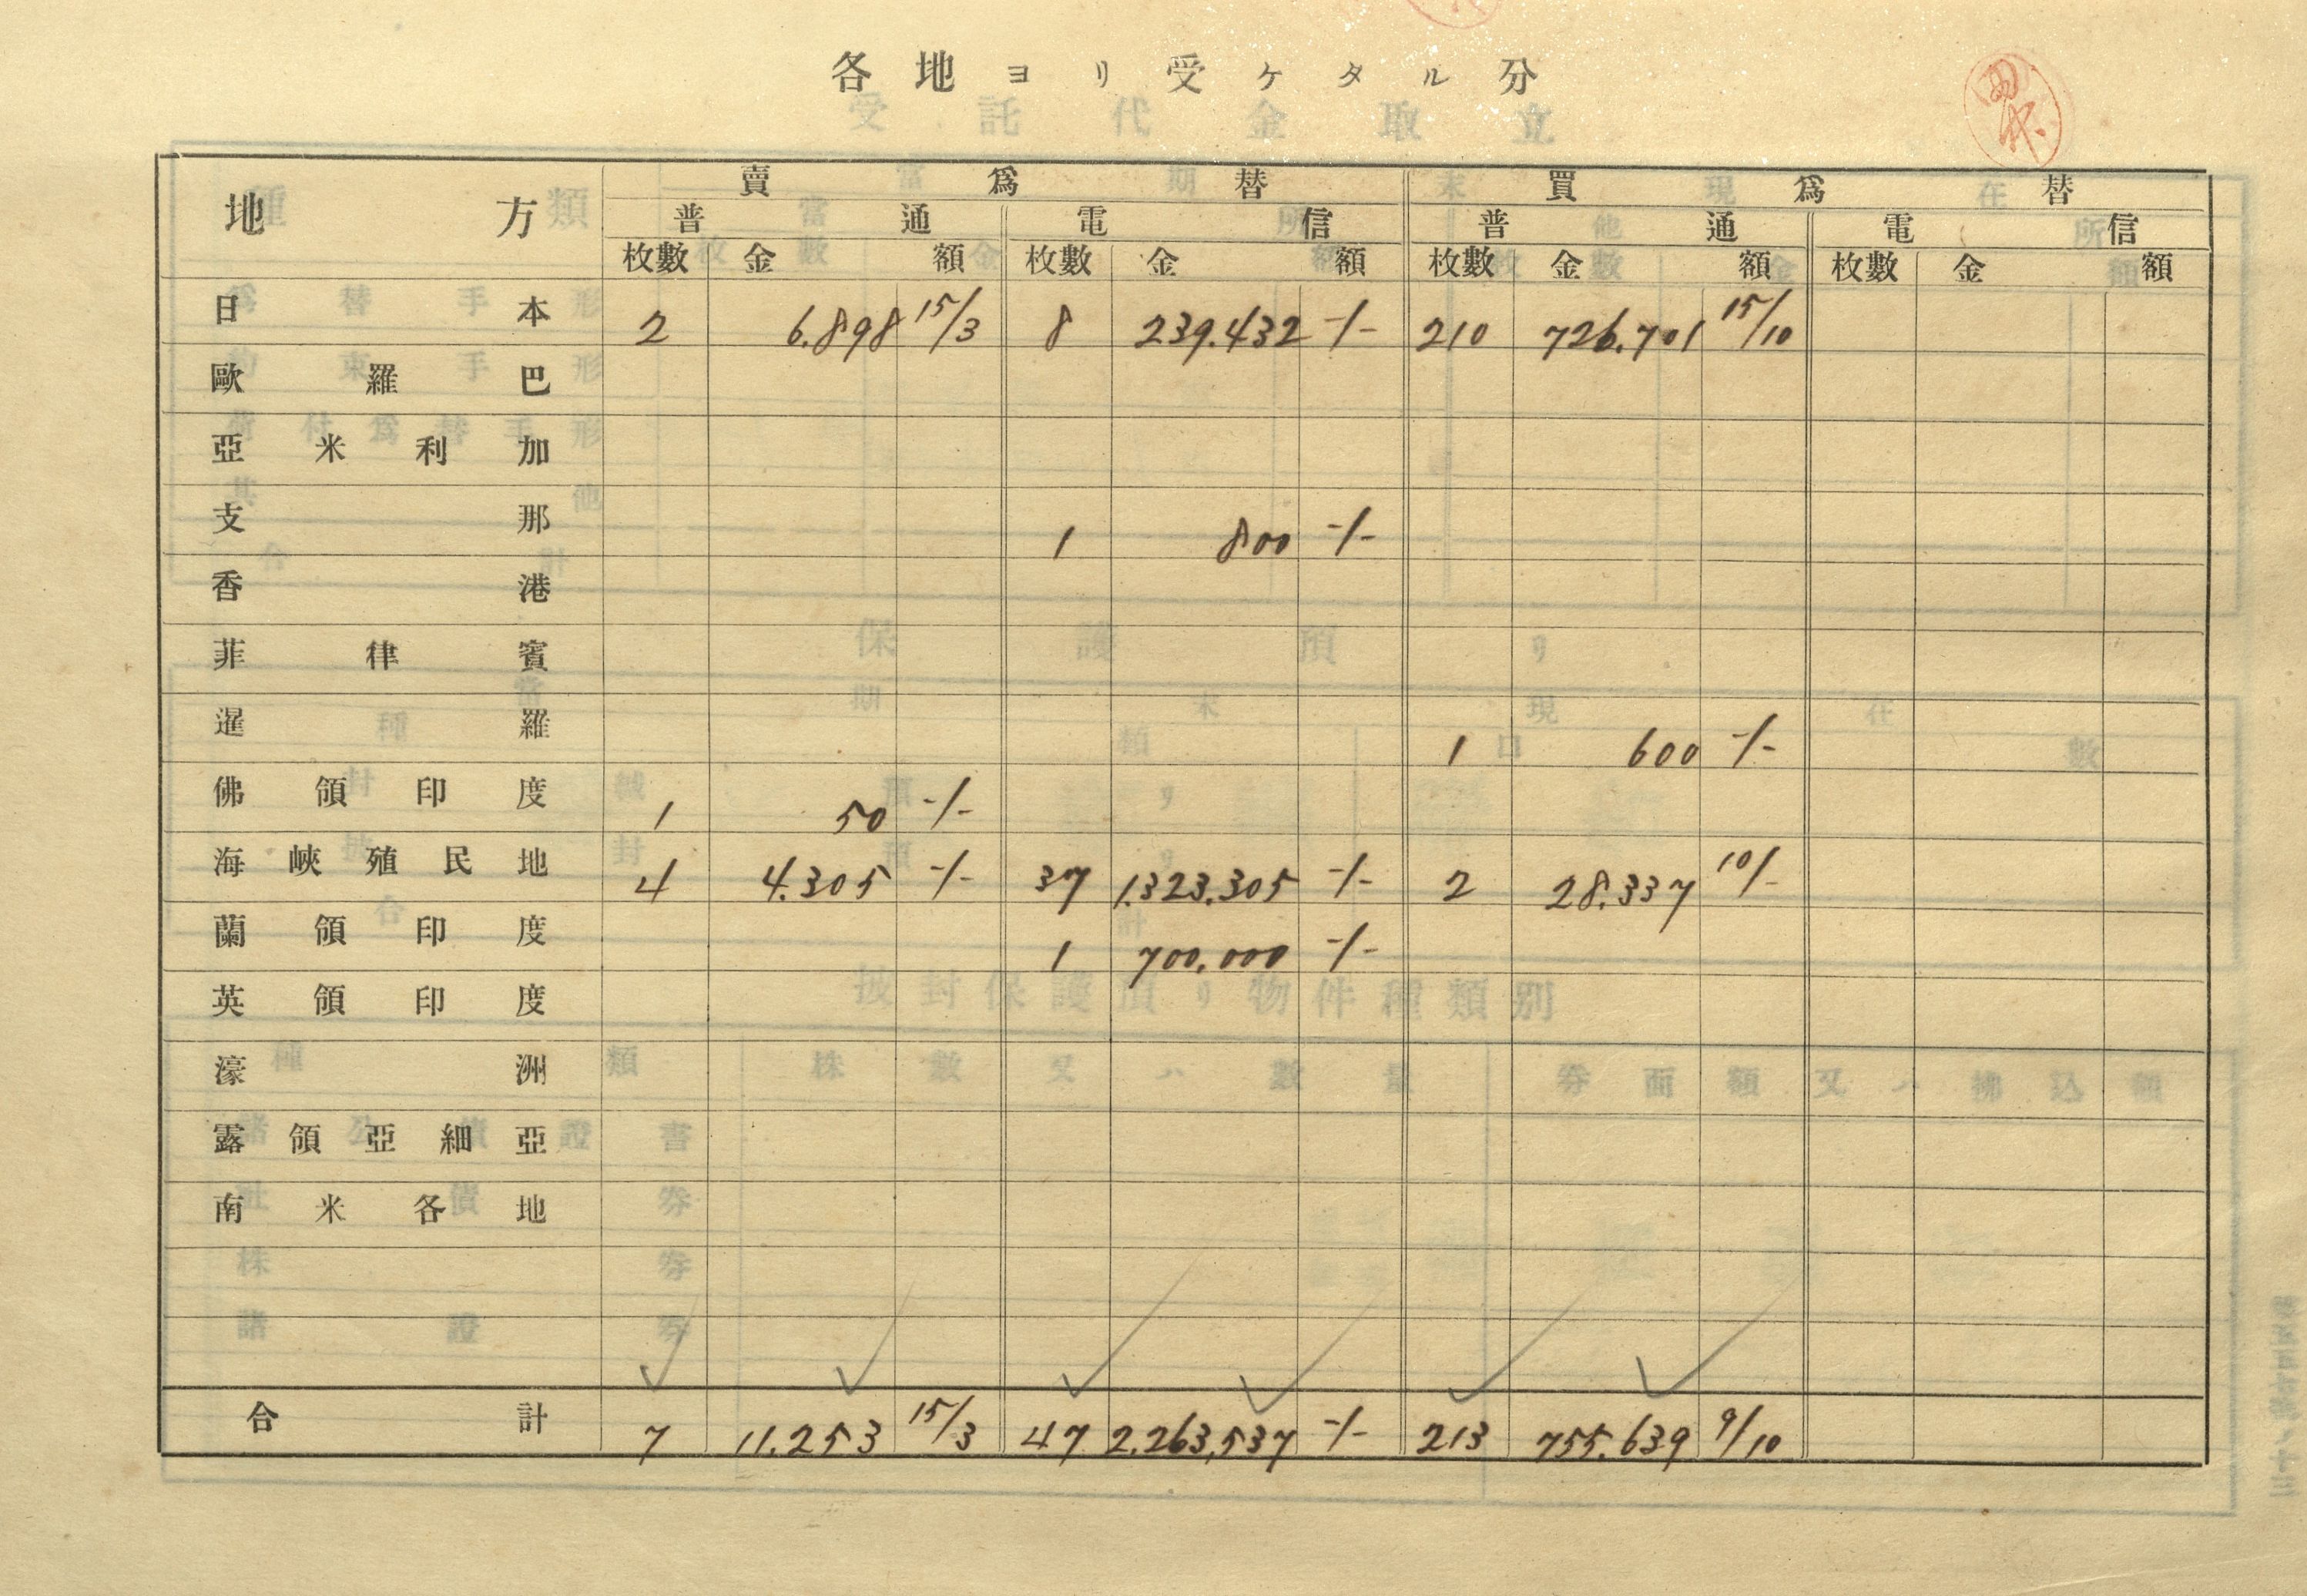 各地ヨリ受ケタル分
地方 賣爲替 買爲替
普通 電信 普通 電信
枚數 金額 枚數 金額 枚數 金額 枚數 金額
日本 2 6.898 15/3 8 239.432 -/- 210 726.701 15/10
歐羅巴
亞米利加
支那 1 800 -/-
香港
菲律賓
暹羅 1 600 -/-
佛領印度 1 50 -/-
海峽殖民地 4 4.305 -/- 37 1.323.305 -/- 2 28.337 10/-
蘭領印度 1 700.000 -/-
英領印度
濠洲
露領亞細亞
南米各地
合計 7 11.253 15/3 47 2.263.537 -/- 213 755.639 9/10